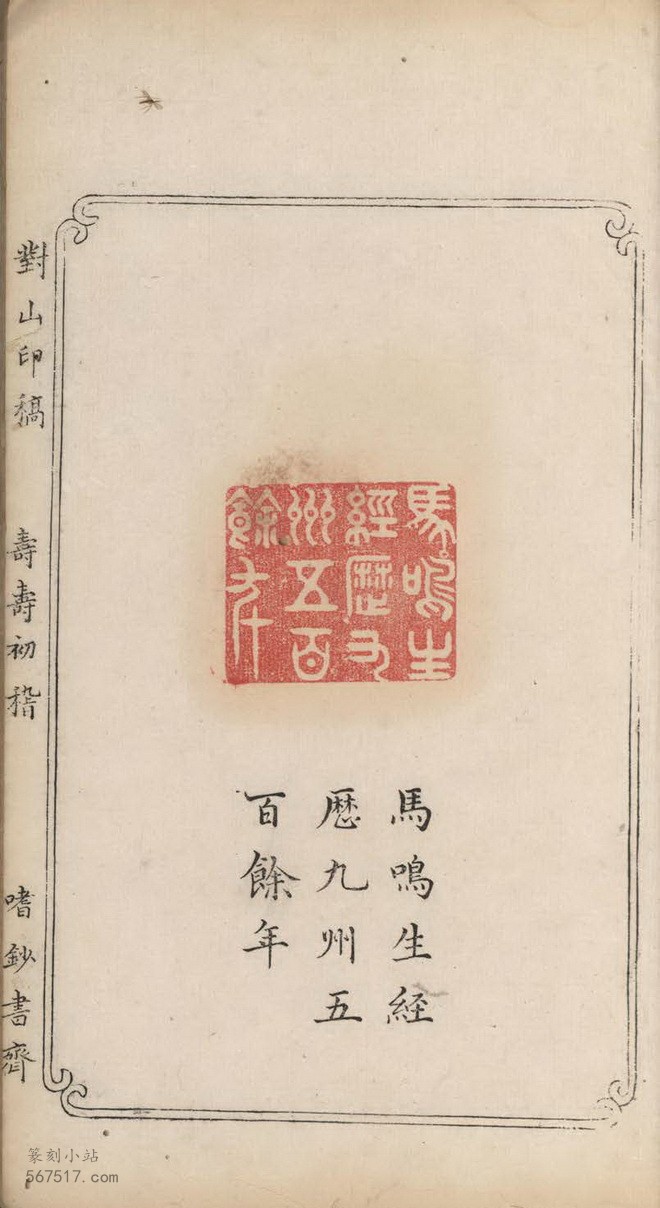 馬鳴生
經歷九
州五百
餘年
馬鳴生経
歴九州五
百餘年
對山印稿
壽壽初稽
嗜鈔書齊
篆刻小站
567517.com